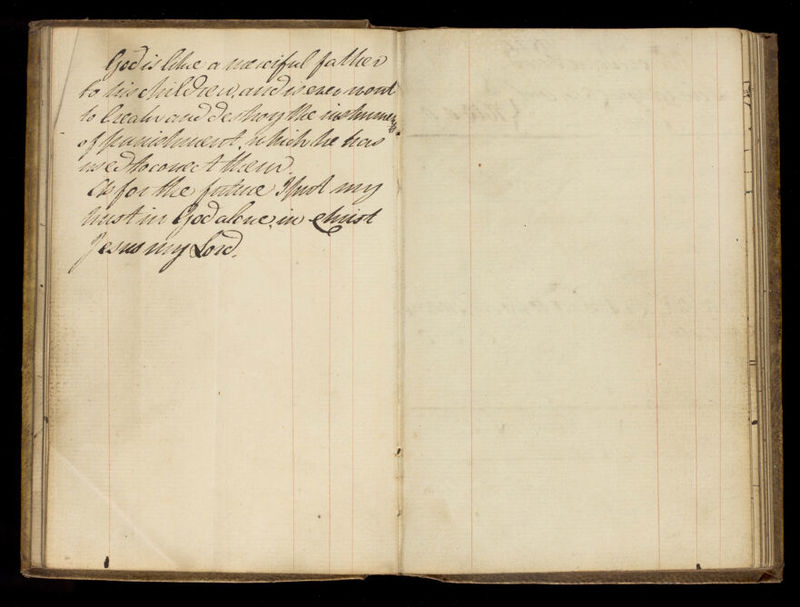 God is like a merciful father
to his children, and is ever wont
to break and destroy the instrument
of punishment, which he has
used to correct them.
As for the future I put my
trust in God alone, in Christ
Jesus my Lord.